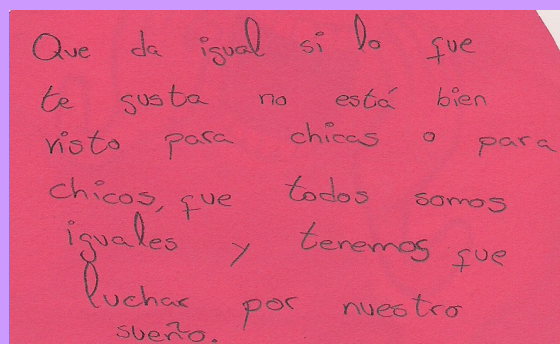 Que da igual si lo que
te gusta no está bien
visto para chicas o para
chicos, que todos somos
iguales y tenemos que
luchar por nuestro
sueño.